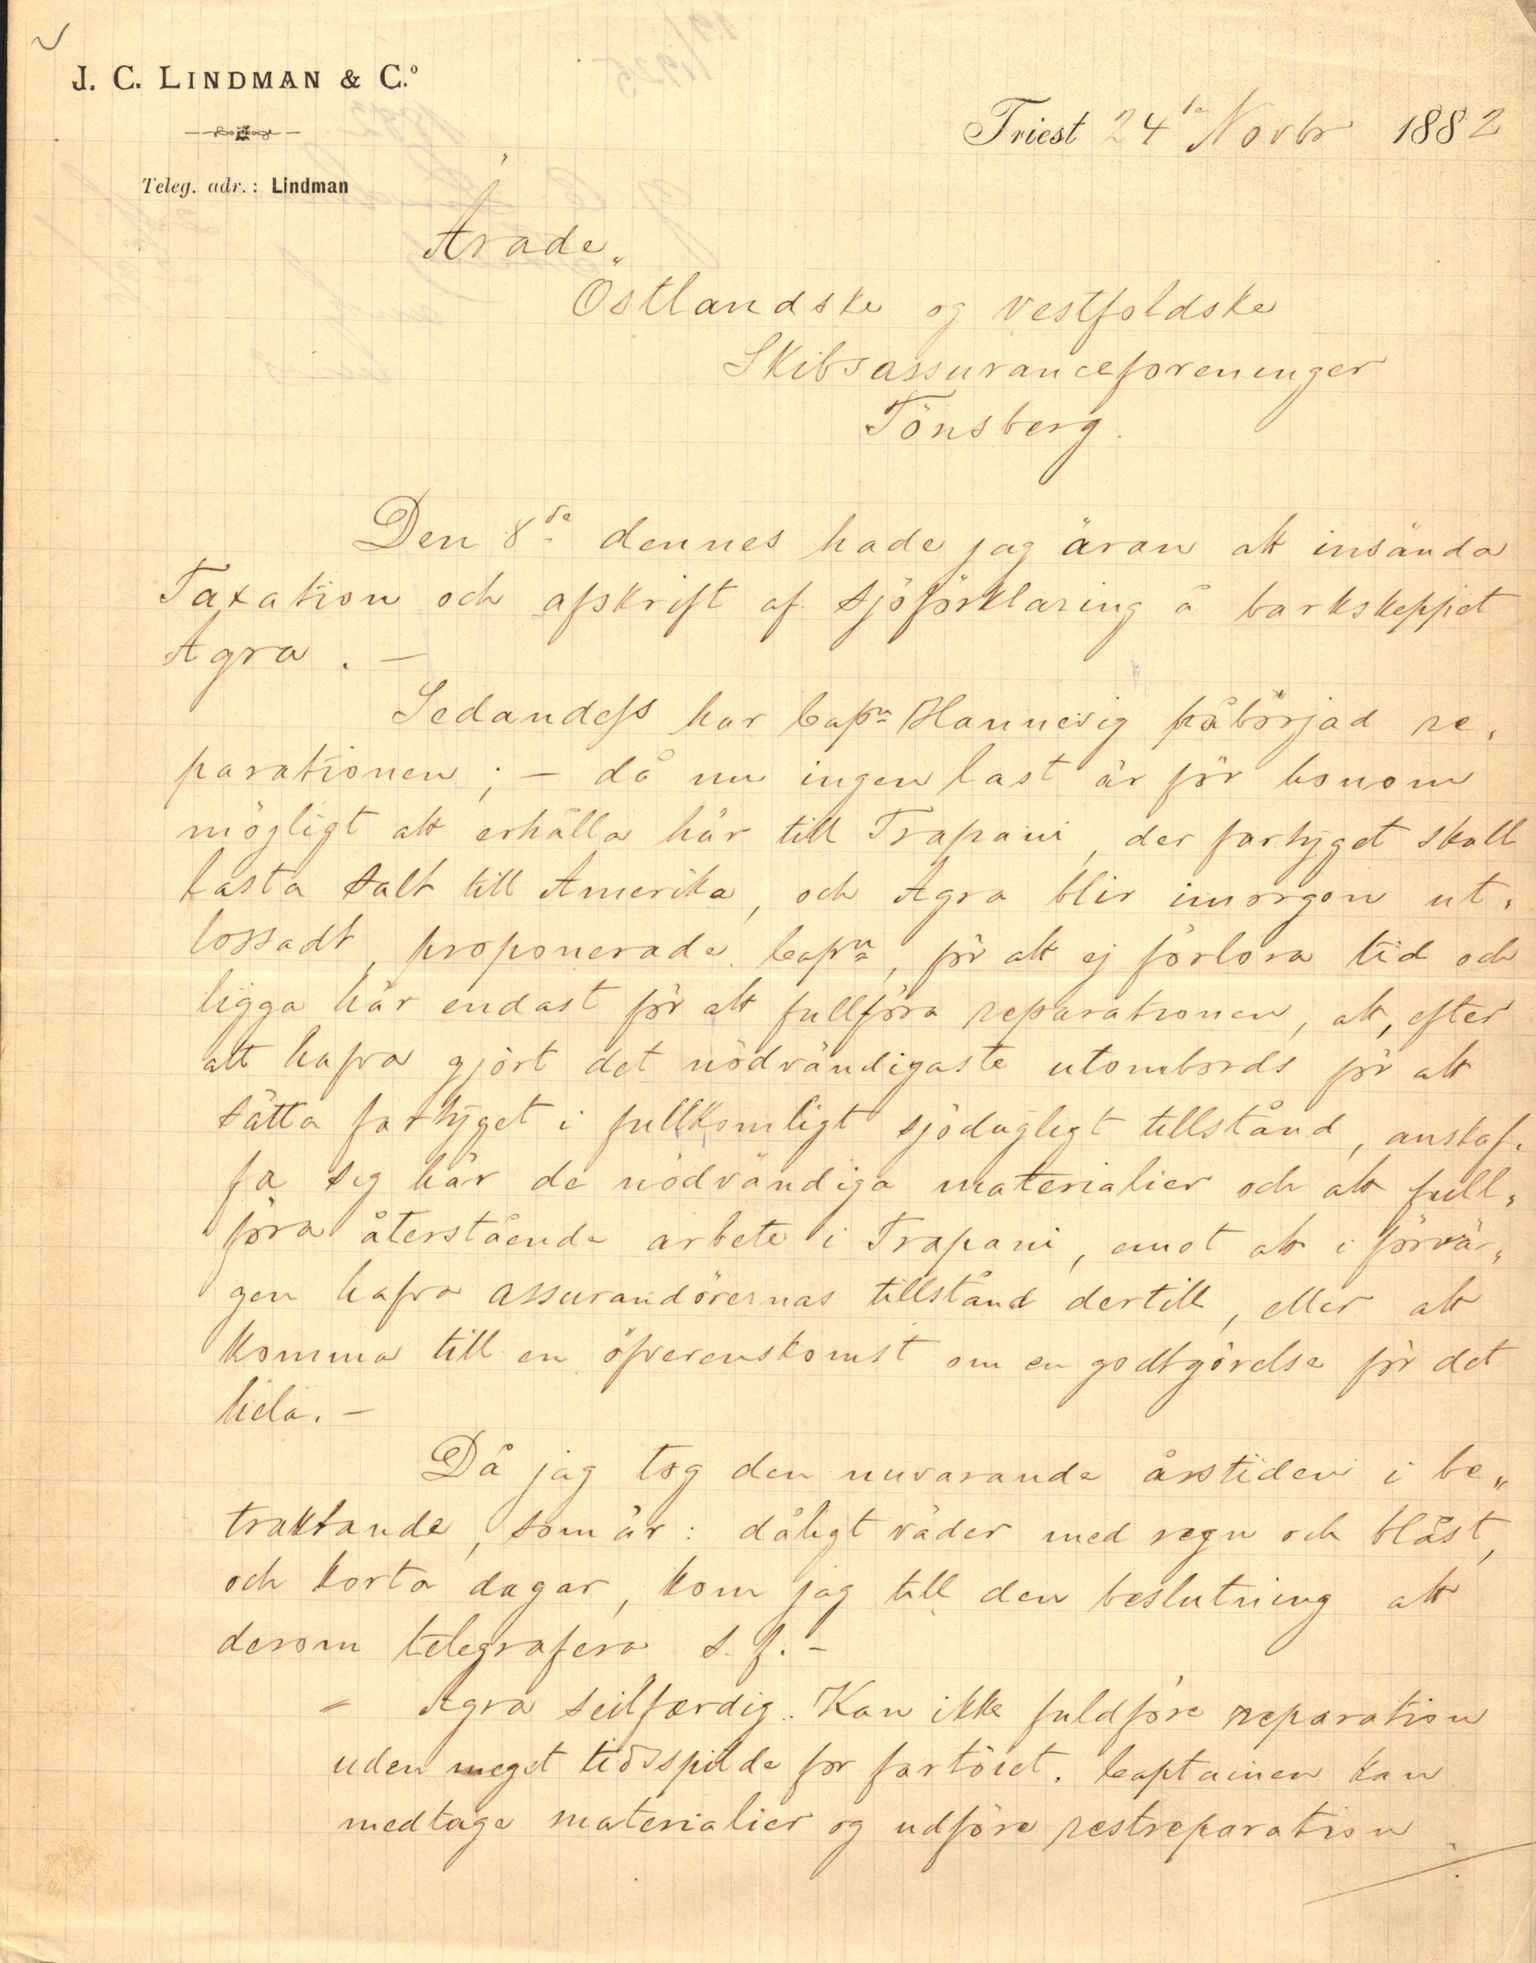 J. C. LINDMAN & C.º
Teleg. adr.: Lindman
Triest 24de Novbr 1882
Ärade
Östlandske og Vestfoldske
Skibsassuranceforeninger
Tönsberg.
Den 8de dennes hade jag äran att insända
Taxation och afskrift af sjöförklaring å barkskeppet
Agra. —
Sedandess har Capn Hannevig påbörjad re-
parationen; — då nu ingen last är för honom
mögligt att erhålla här till Trapani, der fartyget skall
lasta salt till Amerika, och Agra blir imorgon ut-
lossadt, proponerade Capn, för att ej förlora tid och
ligga här endast för att fullföra reparationen, att, efter
att hafva gjört det nödvändigaste utombords för att
sätta fartyget i fullkomligt sjödugligt tillstånd, anskaf-
fa sig här de nödvändiga materialier och att full-
föra återstående arbete i Trapani, emot att i förvä-
gen hafva assurandörernas tillstånd dertill, eller att
komma till en öfverenskomst om en godtgörelse för det
hela. —
Då jag tog den nuvarande årstiden i be-
traktande, som är: dåligt väder med regn och blåst,
och korta dagar, kom jag till den beslutning att
derom telegrafera s. f. —
" Agra seilfærdig. Kan ikke fuldföre reparation
uden meget tidsspilde for fartöiet. Captainen kan
medtage materialier og udföre restreparation